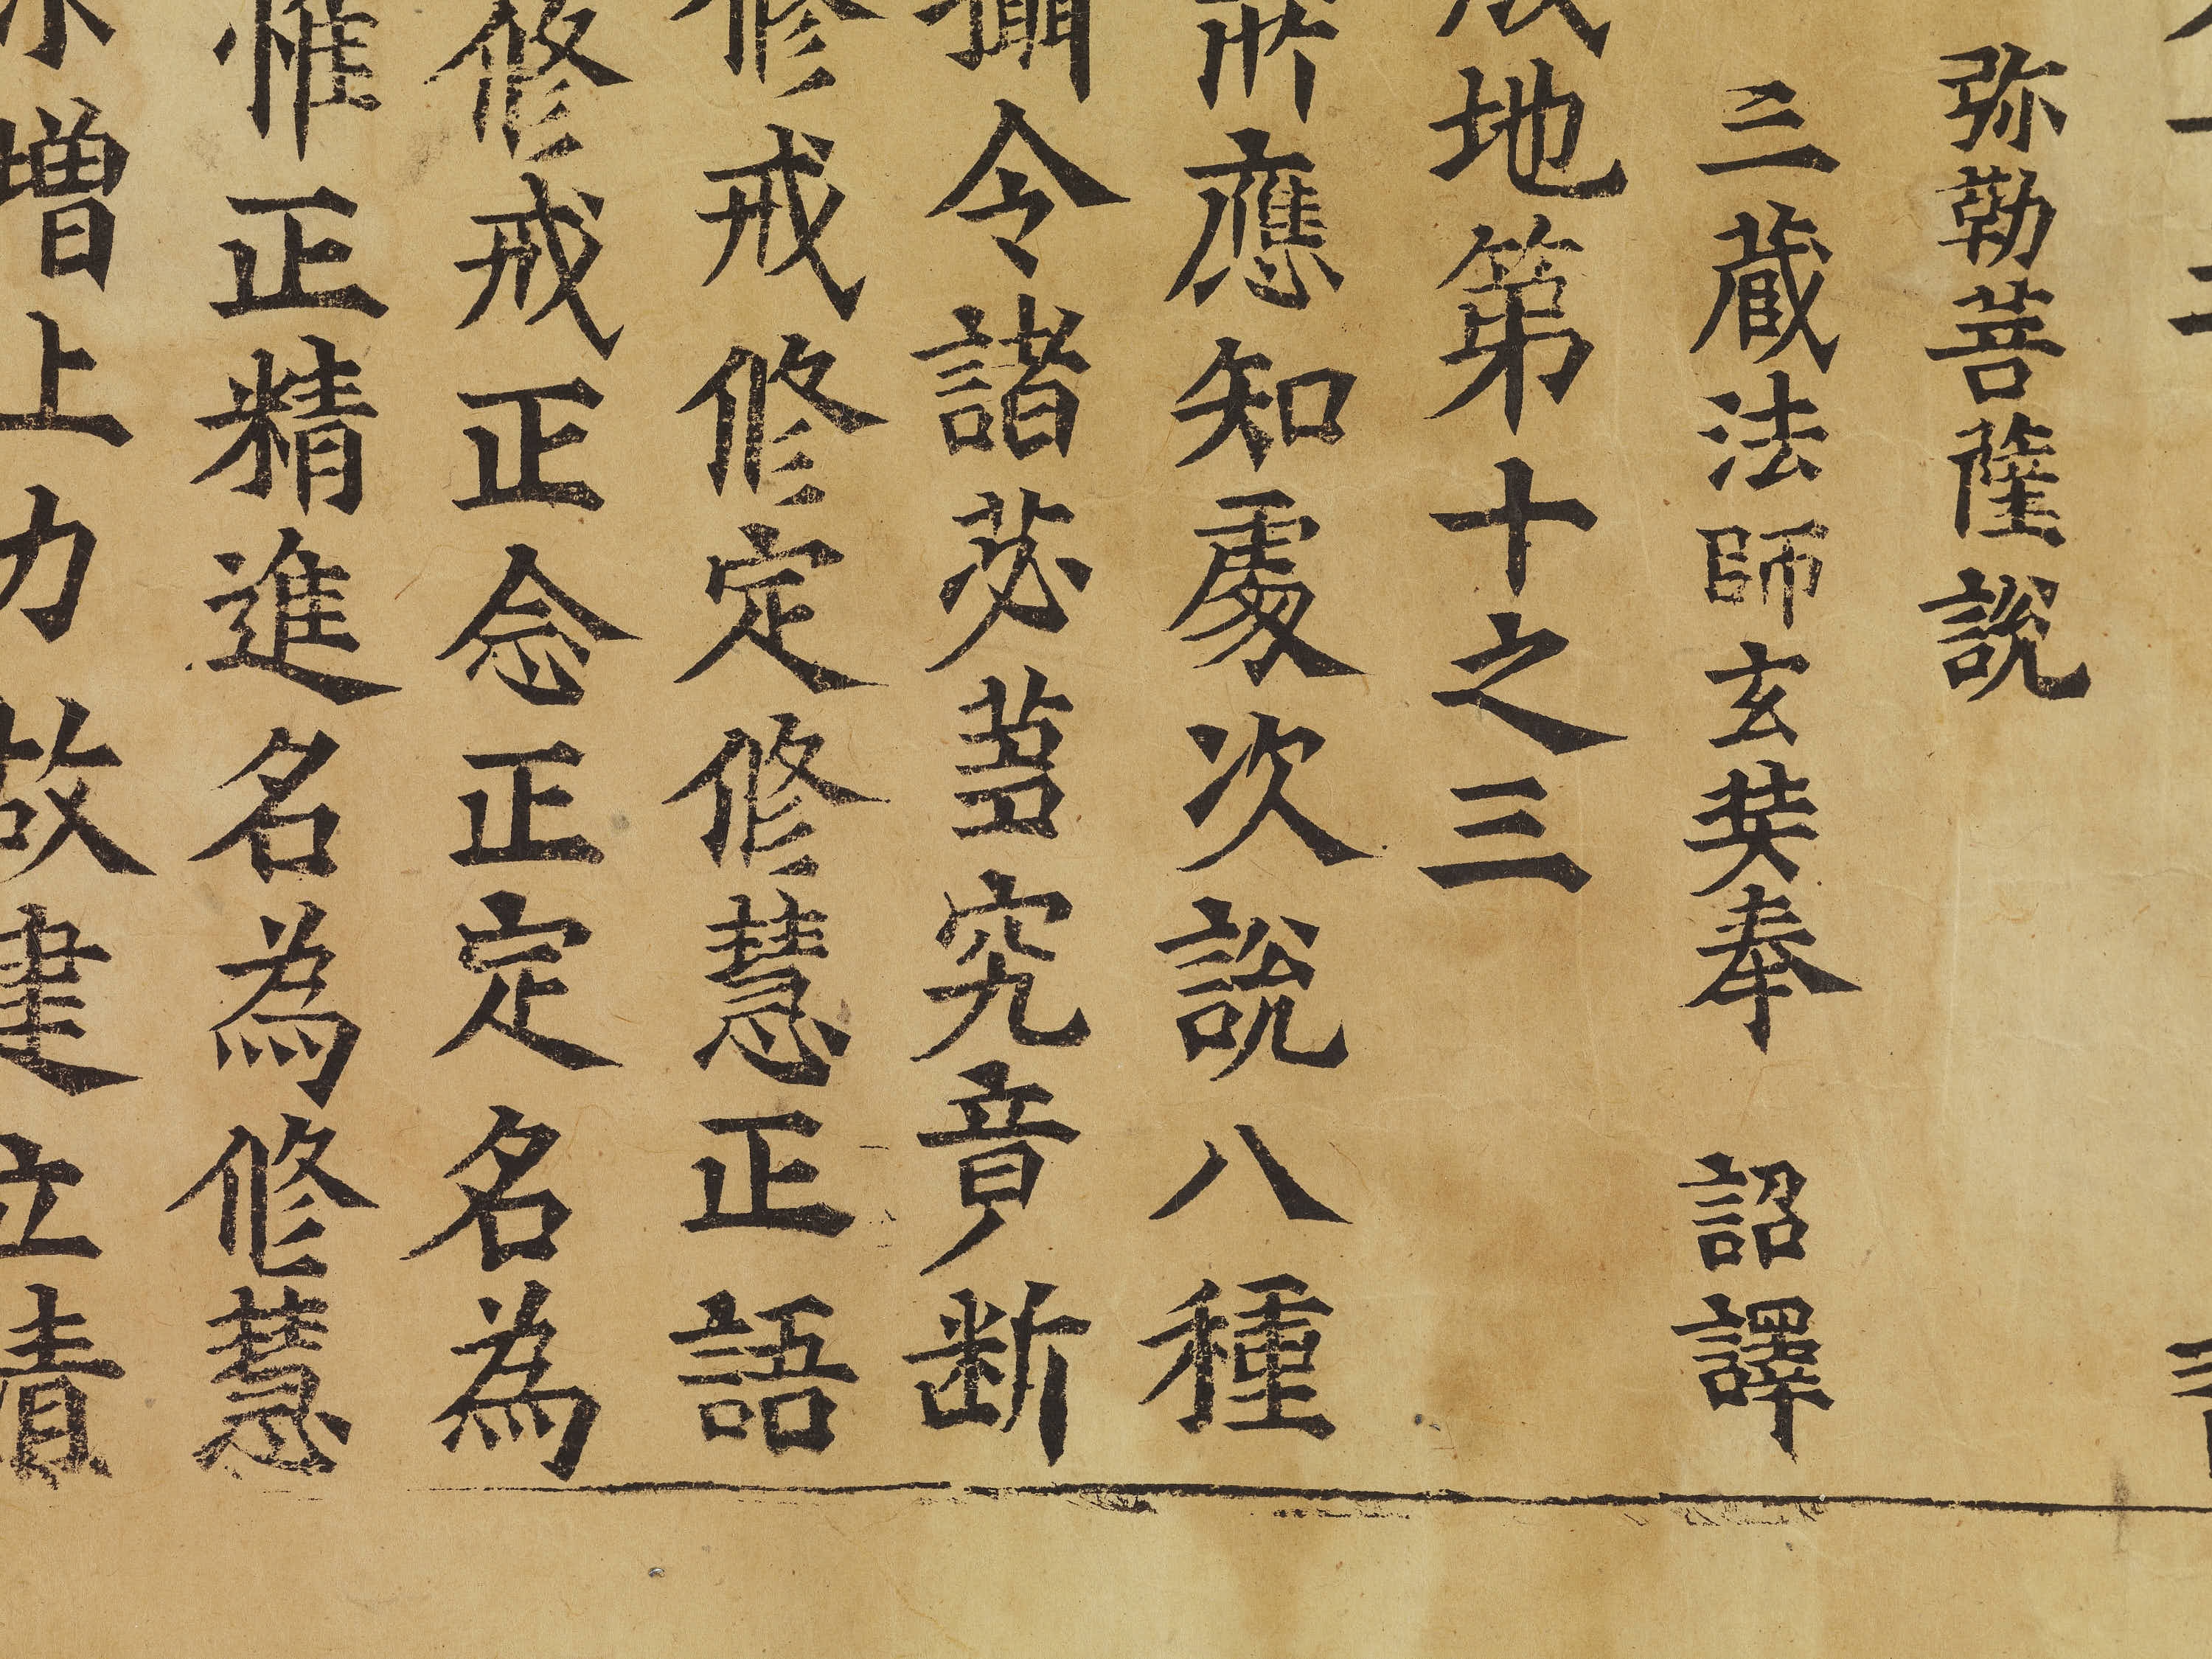 弥勒菩薩說
三蔵法師玄奘奉　詔譯
地第十之三
應知處次說八種
攝令諸苾蒭究竟断
修戒修定修慧正語
修戒正念正定名為
惟正精進名為修慧
增上力故建立清